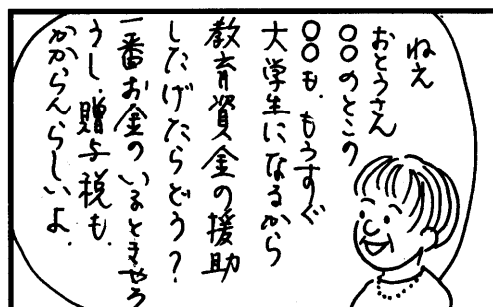 ねえ
おとうさん
○○のとこの
○○も、もうすぐ
大学生になるから
教育資金の援助
したげたらどう?
一番お金のいるときやろ
うし、贈与税も、
かからんらしいよ.